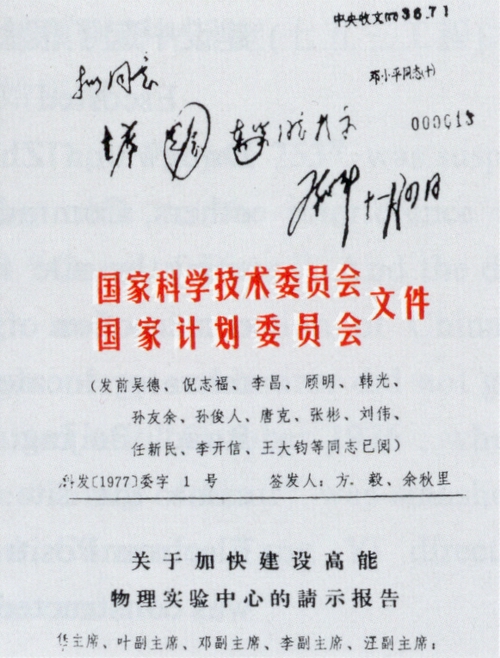 中央收文nº3671
邓小平同志(十)
拟同意
000015
十一月四日
国家科学技术委员会
国家计划委员会
文件
(发前吴德、倪志福、李昌、顾明、韩光、
孙友余、孙俊人、唐克、张彬、刘伟、
任新民、李开信、王大钧等同志已阅)
科发〔1977〕委字 1 号 签发人：方　毅、余秋里
关于加快建设高能
物理实验中心的請示报告
华主席、叶副主席、邓副主席、李副主席、汪副主席：